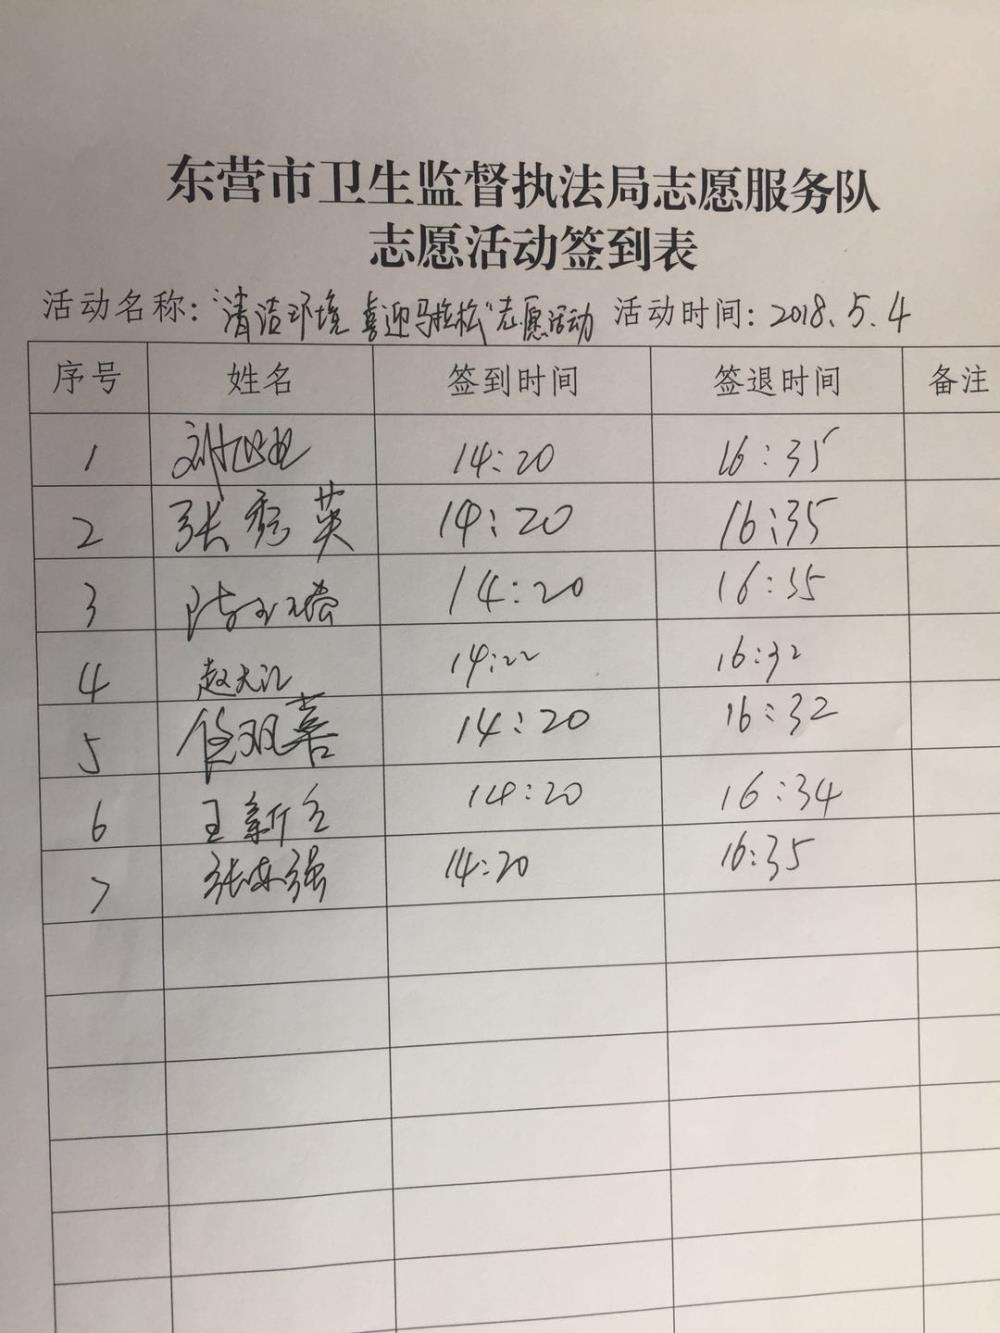 东营市卫生监督执法局志愿服务队
志愿活动签到表
活动名称：“清洁环境 喜迎马拉松”志愿活动 活动时间：2018.5.4
序号 姓名 签到时间 签退时间 备注
1 刘 14:20 16:35
2 张秀英 14:20 16:35
3 陆 14:20 16:35
4 赵大江 14:22 16:32
5 任双喜 14:20 16:32
6 王新立 14:20 16:34
7 张 强 14:20 16:35